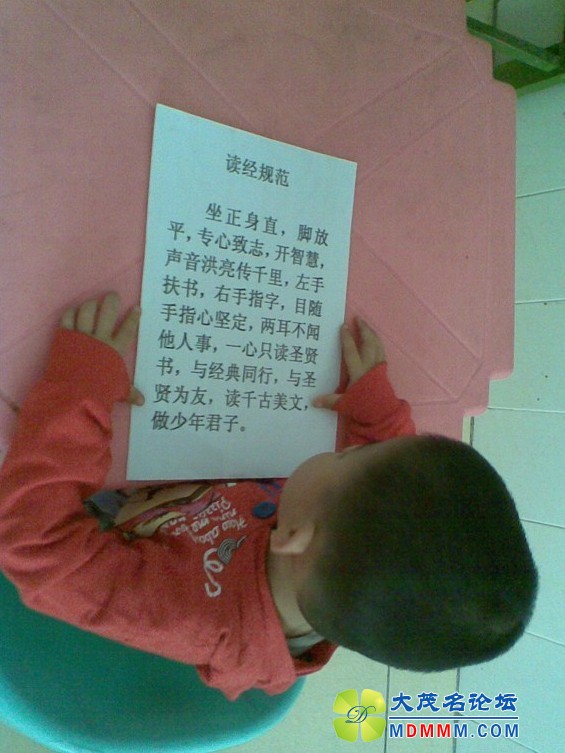 读经规范
坐正身直，脚放
平，专心致志，开智慧，
声音洪亮传千里，左手
扶书，右手指字，目随
手指心坚定，两耳不闻
他人事，一心只读圣贤
书，与经典同行，与圣
贤为友，读千古美文，
做少年君子。
大茂名论坛
MDMMM.COM